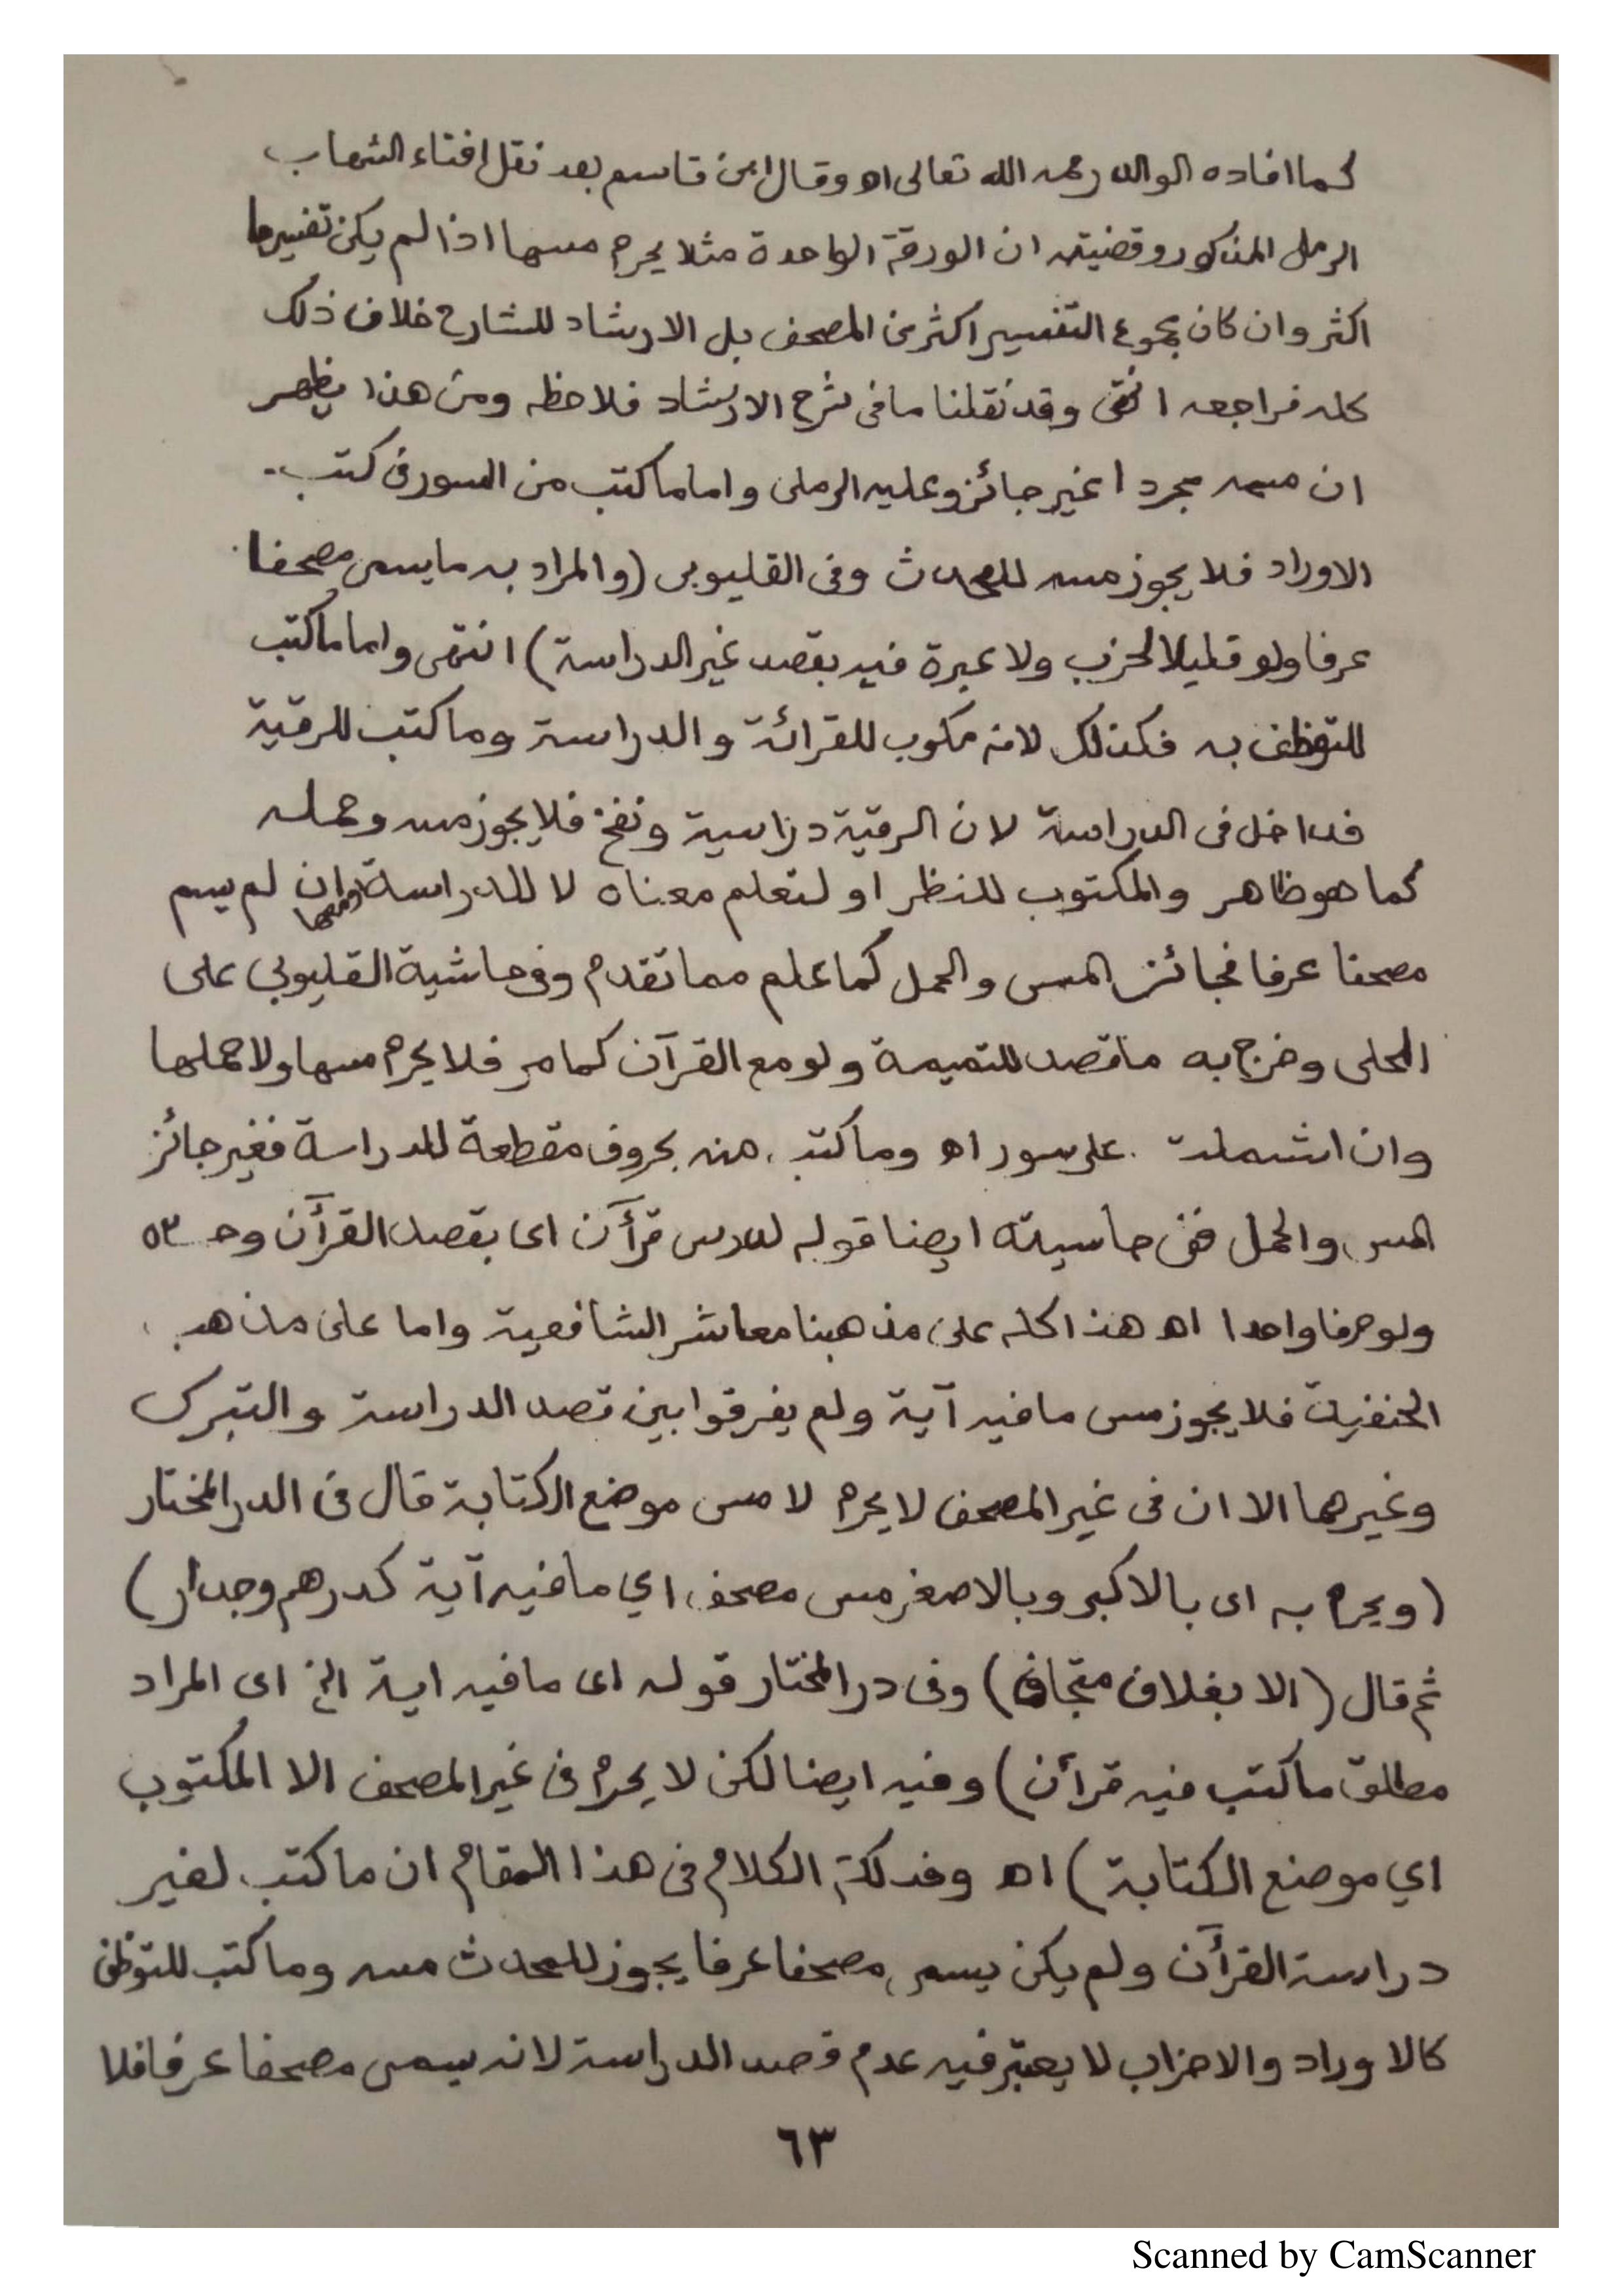 كما افاده الوالد رحمه الله تعالى اه وقال ابن قاسم بعد نقل افتاء الشهاب
الرملى المذكور وقضيته ان الورقة الواحدة مثلا يحرم مسها اذا لم يكن تفسيرها
اكثر وان كان مجموع التفسير اكثر من المصحف بل الارشاد للشارح خلاف ذلك
كله فراجعه انتهى وقد نقلنا ما فى شرح الارشاد فلاحظه ومن هذا يظهر
ان مسه مجردا غير جائز وعليه الرملى واما ما كتب من السور فى كتب
الاوراد فلا يجوز مسه للمحدث وفى القليوبى (والمراد به ما يسمى مصحفا
عرفا ولو قليلا لحزب ولا عبرة فيه بقصد غير الدراسة) انتهى واما ما كتب
للتوظف به فكذلك لانه مكوب للقرائة والدراسة وما كتب للرقية
فداخل فى الدراسة لان الرقية دراسية ونفخ فلا يجوز مسه وحمله
كما هو ظاهر والمكتوب للنظر او لتعلم معناه لا للدراسة وان لم يسم
مصحفا عرفا فجائز المس والحمل كما علم مما تقدم وفى حاشية القليوبي على
المحلى وخرج به ما قصد للتميمة ولو مع القرآن كما مر فلا يحرم مسها ولا حملها
وان اشملت على سور اه وما كتب منه بحروف مقطعة للدراسة فغير جائز
المس والحمل ففى حاسيته ايضا قوله لدرس قرأن اى بقصد القرآن وحده
ولو حرفا واحدا اه هذا كله على مذهبنا معاشر الشافعية واما على مذهب
الحنفية فلا يجوز مس ما فيه آية ولم يفرقوا بين قصد الدراسة والتبرك
وغيرهما الا ان فى غير المصحف لا يحرم لا مس موضع الكتابة قال فى الدر المختار
(ويحرم به اى بالاكبر وبالاصغر مس مصحف اي ما فيه آية كدرهم وجدار)
ثم قال (الا بغلاف متجاف) وفى در المختار قوله اى ما فيه اية الخ اى المراد
مطلق ما كتب فيه قرأن) وفيه ايضا لكن لا يحرم فى غير المصحف الا المكتوب
اي موضع الكتابة) اه وفدلكة الكلام فى هذا المقام ان ما كتب لغير
دراسة القرآن ولم يكن يسمى مصحفا عرفا يجوز للمحدث مسه وما كتب للتوظف
كالاوراد والاحزاب لا يعتبر فيه عدم قصد الدراسة لانه يسمى مصحفا عرفا فلا
٦٣
Scanned by CamScanner